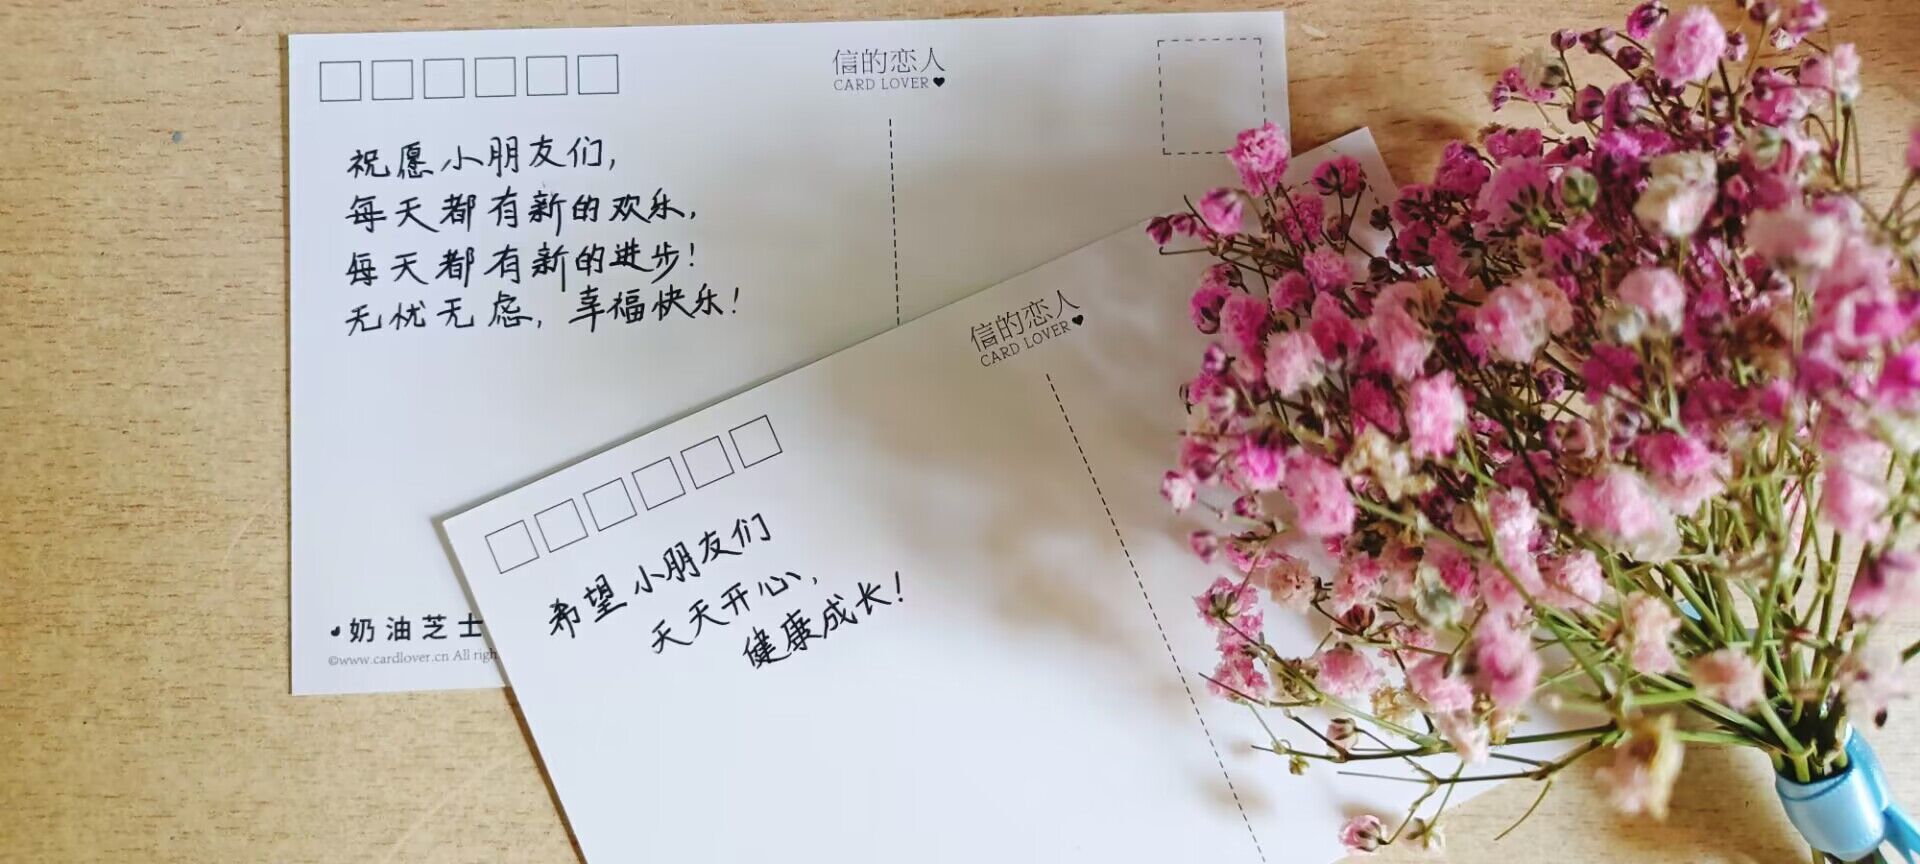 信的恋人
CARD LOVER
祝愿小朋友们,
每天都有新的欢乐,
每天都有新的进步!
无忧无虑,幸福快乐!
奶油芝士
©www.cardlover.cn All righ
信的恋人
CARD LOVER
希望小朋友们
天天开心,
健康成长!